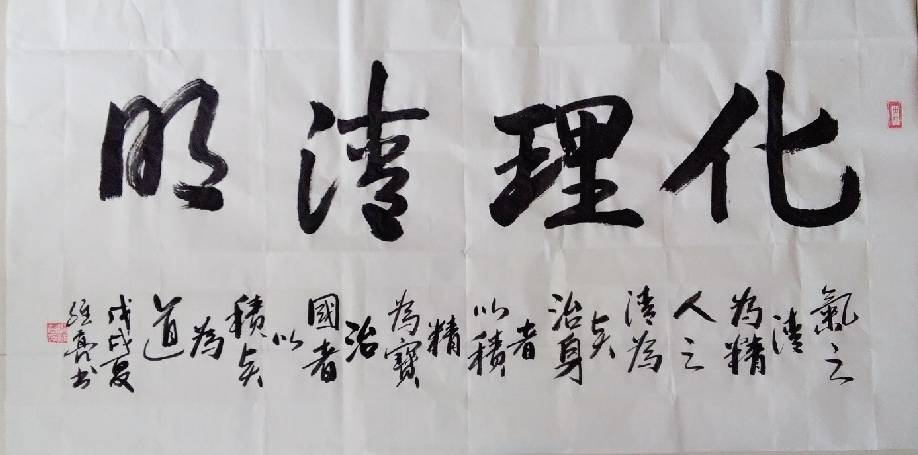 化理清明
氣之
清
為精
人之
清為
贤
治身
者
以積
精
為寶
治
國者
以
積贤
為
道
戊戌夏
亮书